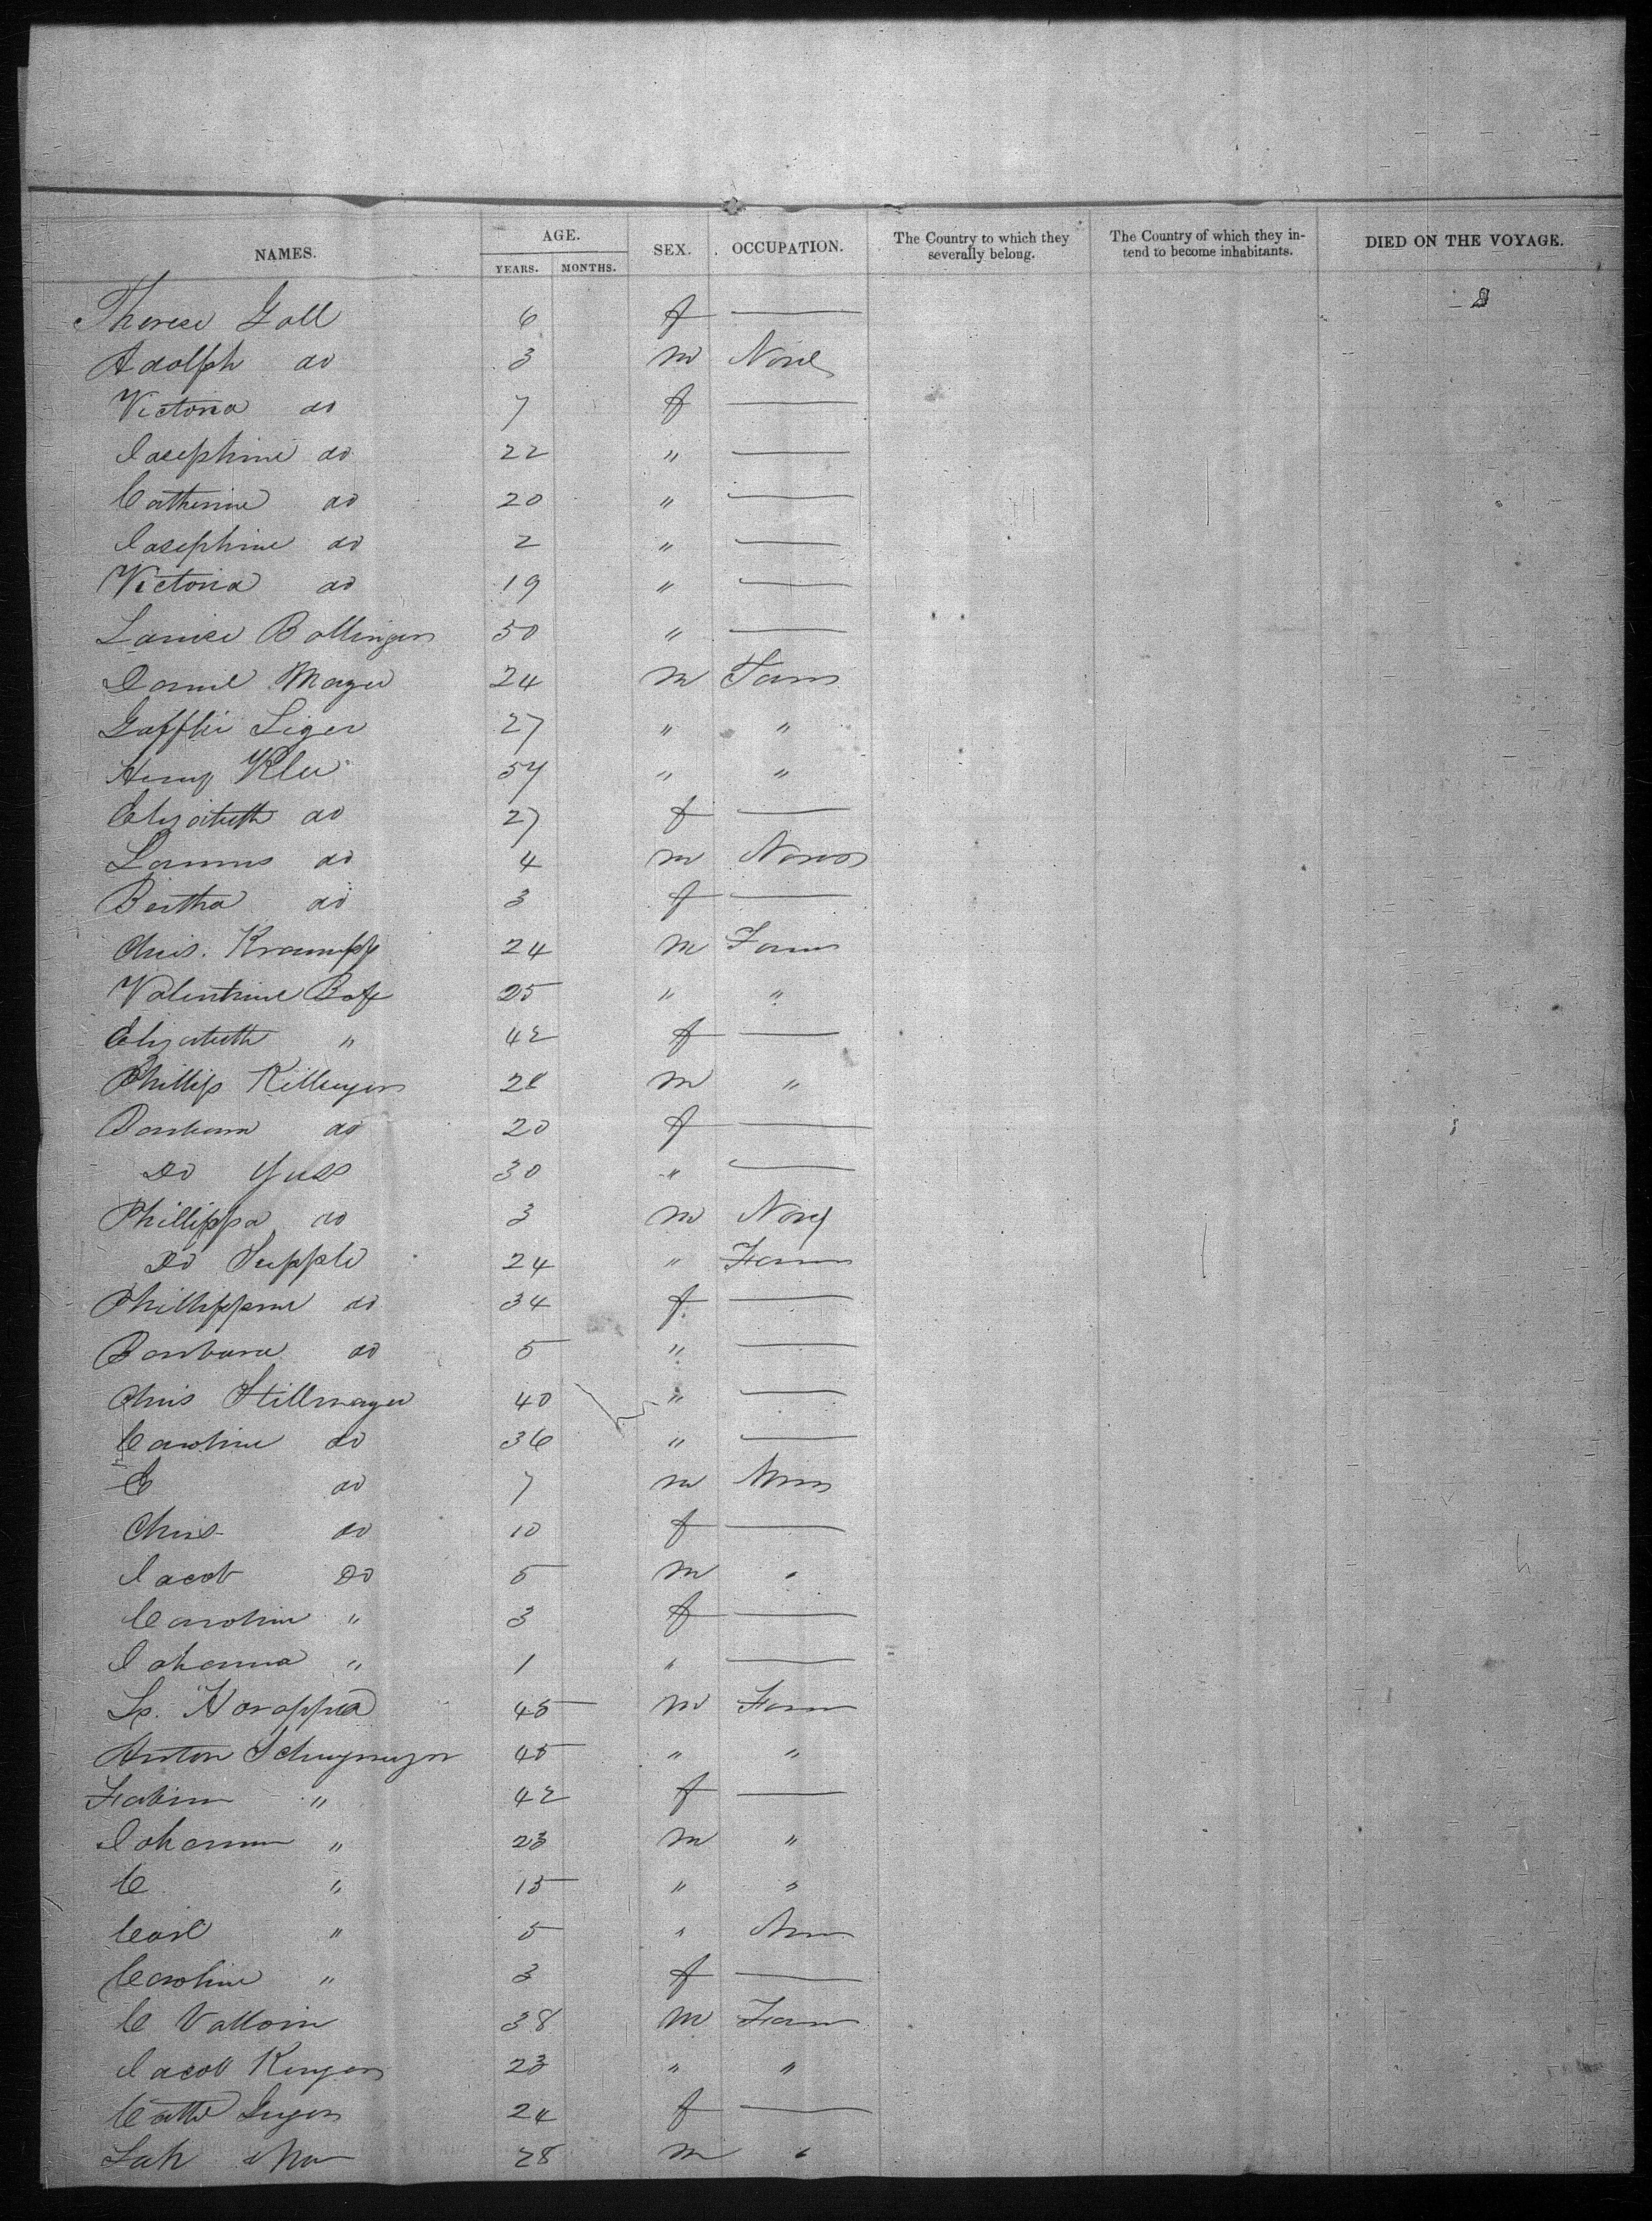 NAMES. AGE. SEX. OCCUPATION. The Country to which they severally belong. The Country of which they intend to become inhabitants. DIED ON THE VOYAGE.
YEARS. MONTHS.
Therese Goll 6 f —
Adolph do 3 m None
Victoria do 7 f —
Josephine do 22 " —
Catherine do 20 " —
Josephine do 2 " —
Victoria do 19 " —
Louise Bollinger 50 " —
Daniel Mayer 24 m Farm
Liger 27 " "
Henry Klee 57 " "
Elizabeth do 27 f —
do 4 m None
Bertha do 3 f —
Chris. Krumpp 24 m Farm
Valentine 25 " "
Elizabeth " 42 f —
Phillip 28 m "
Barbara do 20 f —
Do Yuss 30 " —
Phillippa do 3 m None
Do Supple 24 " Farm
Phillippine do 34 f —
Barbara do 5 " —
Chris Stillmayer 40 " —
Caroline do 36 " —
C do 7 m None
Chris do 10 f —
Jacob Do 5 m "
Caroline " 3 f —
Johanna " 1 " —
45 m Farm
Anton 45 " "
" 42 f —
Johann " 23 m "
C " 15 " "
Carl " 5 " None
Caroline " 3 f —
C 38 m Farm
Jacob 23 " "
24 f —
28 m "